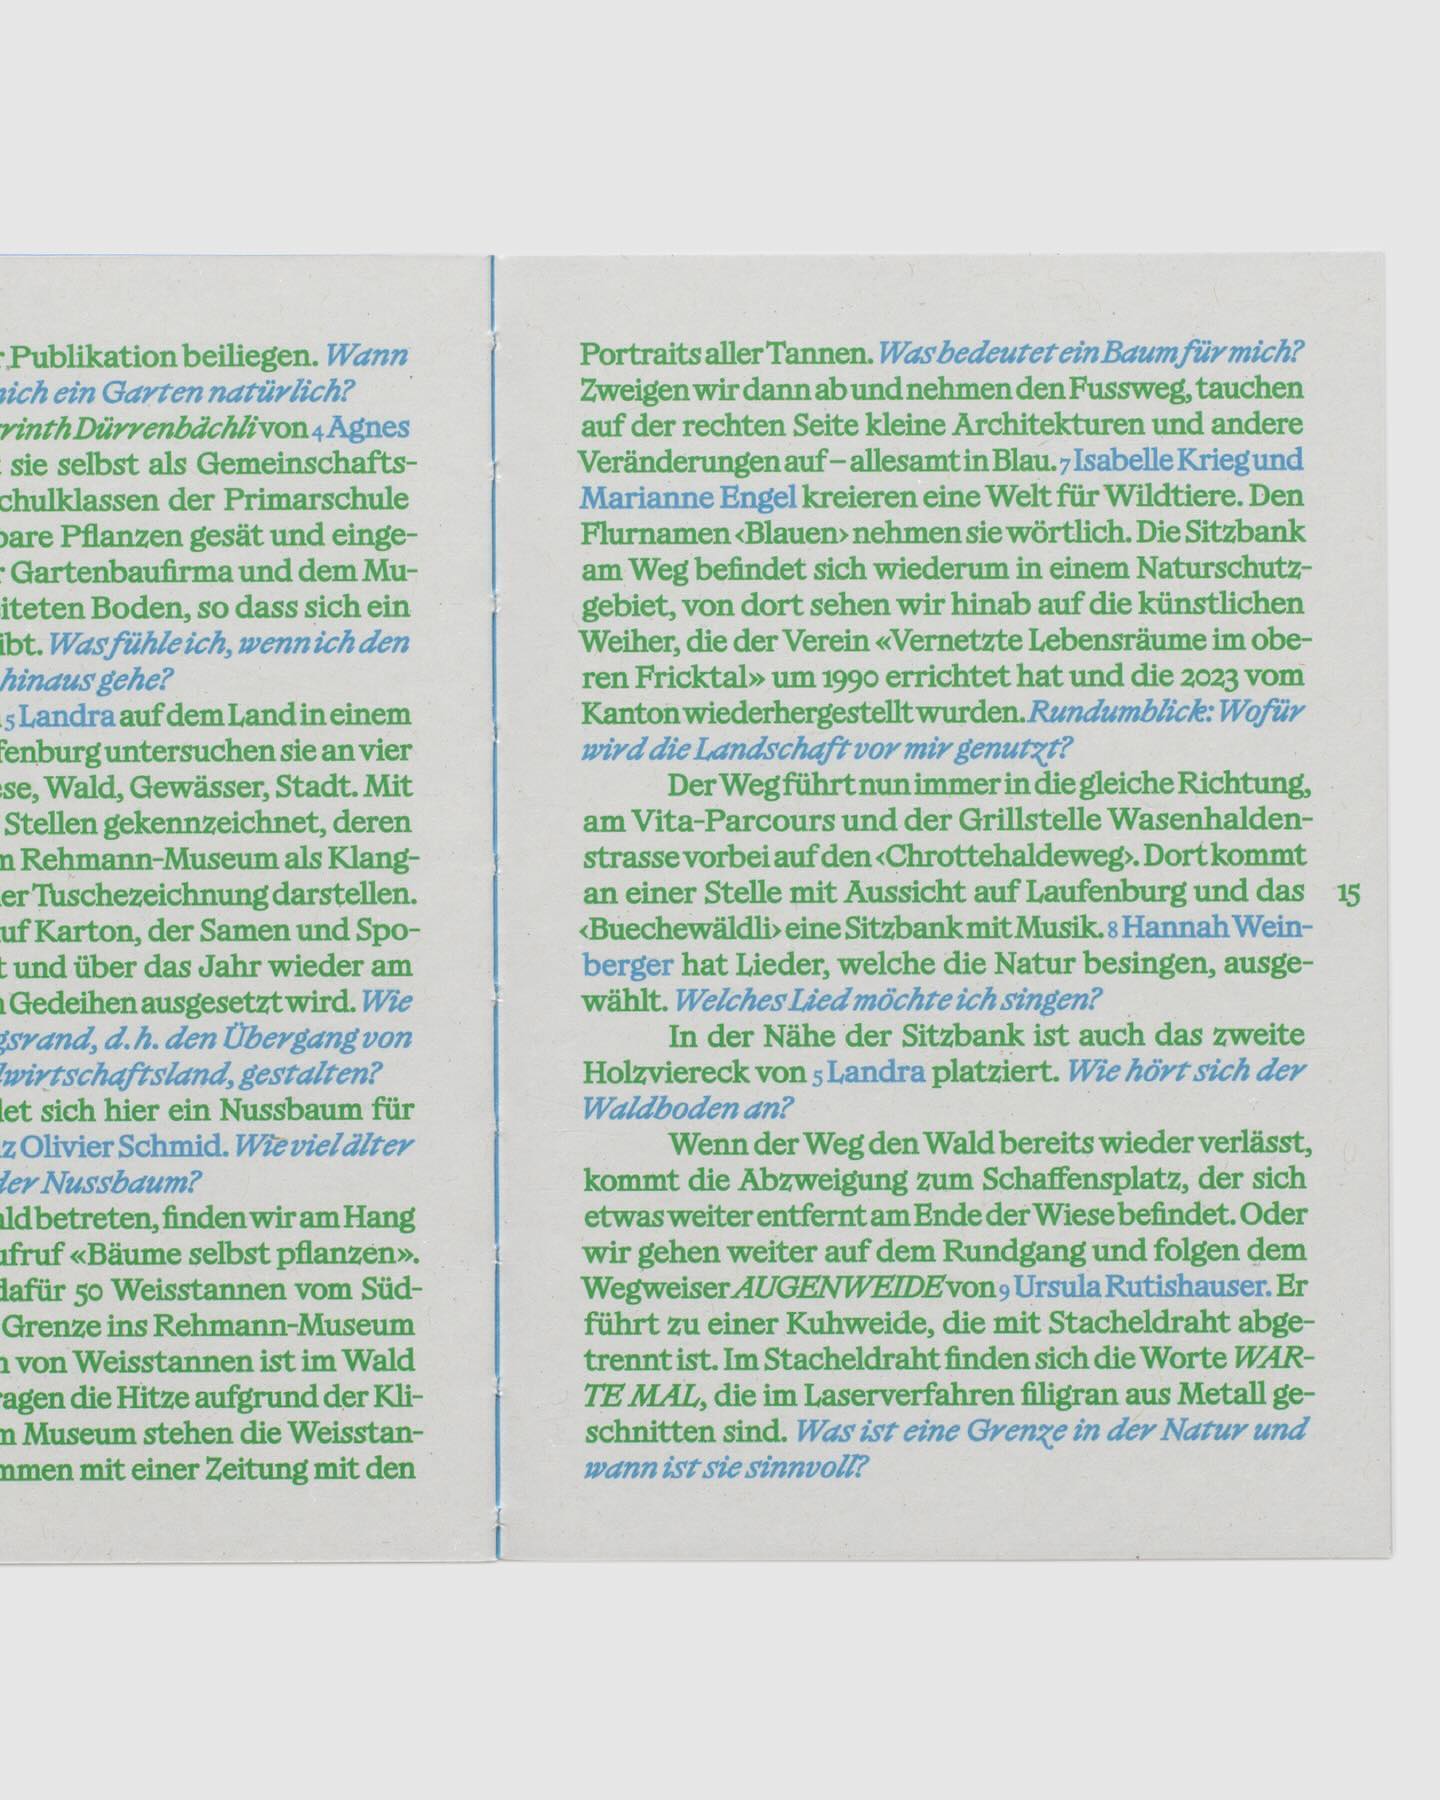 Publikation beiliegen. Wann
mich ein Garten natürlich?
Dürrenbächli von 4 Agnes
sie selbst als Gemeinschafts-
der Primarschule
Pflanzen gesät und einge-
Gartenbaufirma und dem Mu-
Boden, so dass sich ein
Was fühle ich, wenn ich den
hinaus gehe?
5 Landra auf dem Land in einem
untersuchen sie an vier
Wald, Gewässer, Stadt. Mit
Stellen gekennzeichnet, deren
Rehmann-Museum als Klang-
Tuschezeichnung darstellen.
Karton, der Samen und Spo-
und über das Jahr wieder am
Gedeihen ausgesetzt wird. Wie
d. h. den Übergang von
gestalten?
sich hier ein Nussbaum für
Olivier Schmid. Wie viel älter
der Nussbaum?
betreten, finden wir am Hang
«Bäume selbst pflanzen».
dafür 50 Weisstannen vom Süd-
Grenze ins Rehmann-Museum
von Weisstannen ist im Wald
die Hitze aufgrund der Kli-
Museum stehen die Weisstan-
mit einer Zeitung mit den
Portraits aller Tannen. Was bedeutet ein Baum für mich?
Zweigen wir dann ab und nehmen den Fussweg, tauchen
auf der rechten Seite kleine Architekturen und andere
Veränderungen auf – allesamt in Blau. 7 Isabelle Krieg und
Marianne Engel kreieren eine Welt für Wildtiere. Den
Flurnamen ‹Blauen› nehmen sie wörtlich. Die Sitzbank
am Weg befindet sich wiederum in einem Naturschutz-
gebiet, von dort sehen wir hinab auf die künstlichen
Weiher, die der Verein «Vernetzte Lebensräume im obe-
ren Fricktal» um 1990 errichtet hat und die 2023 vom
Kanton wiederhergestellt wurden. Rundumblick: Wofür
wird die Landschaft vor mir genutzt?
Der Weg führt nun immer in die gleiche Richtung,
am Vita-Parcours und der Grillstelle Wasenhalden-
strasse vorbei auf den ‹Chrottehaldeweg›. Dort kommt
an einer Stelle mit Aussicht auf Laufenburg und das
‹Buechewäldli› eine Sitzbank mit Musik. 8 Hannah Wein-
berger hat Lieder, welche die Natur besingen, ausge-
wählt. Welches Lied möchte ich singen?
In der Nähe der Sitzbank ist auch das zweite
Holzviereck von 5 Landra platziert. Wie hört sich der
Waldboden an?
Wenn der Weg den Wald bereits wieder verlässt,
kommt die Abzweigung zum Schaffensplatz, der sich
etwas weiter entfernt am Ende der Wiese befindet. Oder
wir gehen weiter auf dem Rundgang und folgen dem
Wegweiser AUGENWEIDE von 9 Ursula Rutishauser. Er
führt zu einer Kuhweide, die mit Stacheldraht abge-
trennt ist. Im Stacheldraht finden sich die Worte WAR-
TE MAL, die im Laserverfahren filigran aus Metall ge-
schnitten sind. Was ist eine Grenze in der Natur und
wann ist sie sinnvoll?
15